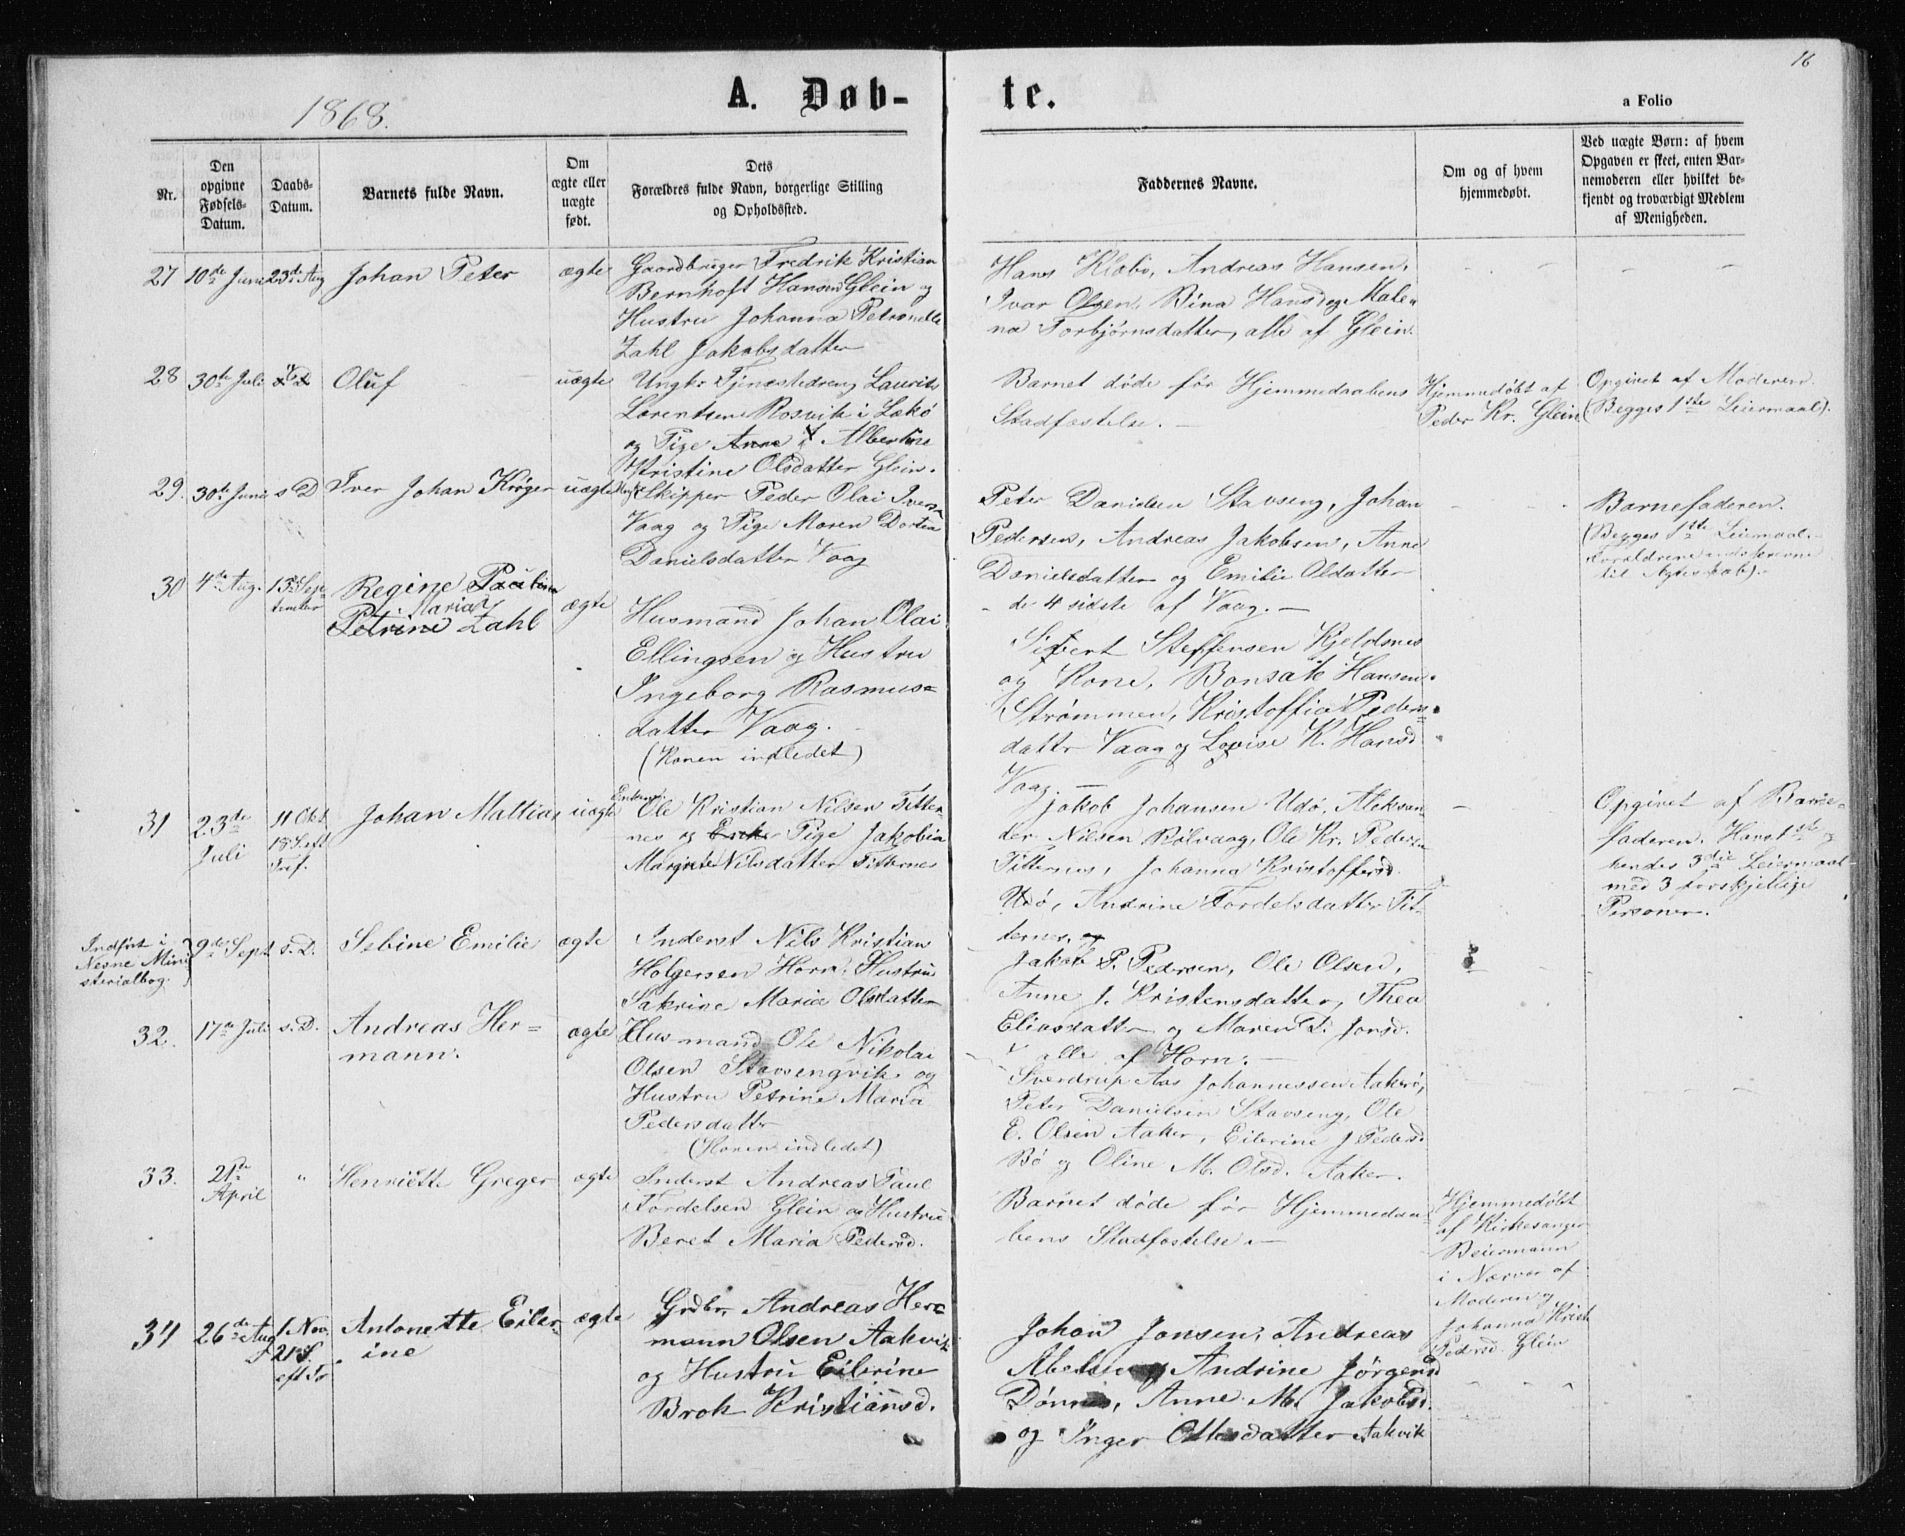 16
1868.
A. Døb-
te.
a Folio
Nr.
Den
opgivne
Fødsels-
Datum.
Daabs-
Datum.
Barnets fulde Navn.
Om
ægte eller
uægte
født.
Dets
Forældres fulde Navn, borgerlige Stilling
og Opholdssted.
Faddernes Navne.
Om og af hvem
hjemmedøbt.
Ved uægte Børn: af hvem
Opgaven er skeet, enten Bar-
nemoderen eller hvilket be-
kjendt og troværdigt Medlem
af Menigheden.
27 10de Juni 23de Aug Johan Peter ægte
Gaardbruger Fredrik Kristian
Bernhoft Hansen Glein og
Hustru Johanna Petronelle
Zahl Jakobsdatter
Hans Klæbo, Andreas Hansen,
Ivar Olsen, Bina Hansd og Male-
na Torbjørnsdatter, alle af Glein.
28 30te Juli s. D Oluf uægte
Ungkr Tjenestedreng Laurits
Lorentsen Rosvik i Løkø
og Pige Anne Albertine
Kristine Olsdatter Glein.
Barnet døde før Hjemmedaabens
Stadfæstelse. —
Hjemmedøbt af
Peder Kr. Glein
Opgivet af Moderen.
(Begges 1ste Leiermaal).
29. 30te Juni s D Iver Johan Krøger uægte
Skipper Peder Olai Iversn
Vaag og Pige Maren Dortea
Danielsdatter Vaag
Peter Danielsen Stavseng, Johan
Pedersen, Andreas Jakobsen, Anne
Danielsdatter og Emilie Olsdatter
de 4 sidste af Vaag. —
Barnefaderen.
(Begges 1ste Leiermaal.
Forældrene
til Ægteskab).
30 4de Aug. 13de Sep-
tember
Regine Pauline
Maria
Petrine Zahl
ægte
Husmand Johan Olai
Ellingsen og Hustru
Ingeborg Rasmus-
datter Vaag.
(Konen indledet)
Sibert Steffensen Kjeldsnes
og Kone, Bonsak Hansen
Strømmen, Kristoffia Peders-
datter Vaag og Lovise K. Hansd
Vaag —
31 23de
Juli
11 Okt
18 S. eft
Tref.
Johan Mattias uægte
Enkemd Ole Kristian Nilsen Titter-
nes og Enke Pige Jakobia
Margrete Nilsdatter Titternes
Jakob Johansen Udø, Aleksan-
der Nilsen Bolvaag, Ole Kr. Pedersn
Titternes, Johanna Kristoffersd
Udø, Andrine Tordelsdatter Tit-
ternes.
Opgivet af Barne-
faderen. Hans 1ste og
hendes 3die Leiermaal
med 3 forskjellige
Personer.
Indført i
Nesne Mini
sterialbog.
9de Sept s. D. Sebine Emilie ægte
Inderst Nils Kristian
Holgersen Horn. Hustru
Sakrine Maria Olsdatter
Jakob P. Pedersen, Ole Olsen,
Anne J. Kristensdatter, Thea
Eliasdatter og Maren D. Jonsd.
alle af Horn. —
32. 17de Juli s. D. Andreas Her-
mann.
ægte
Husmand Ole Nikolai
Olsen Stavsengvik og
Hustru Petrine Maria
Pedersdatter
(Konen indledet)
Sverdrup Aas Johannessen Aakerø,
Peter Danielsen Stavseng, Ole
E. Olsen Aaker, Eilerine J. Pedersd
Bø og Oline M. Olsd. Aaker.
33. 21de
April
" Henriette Greger ægte
Inderst Andreas Paul
Tordelsen Glein og Hustru
Beret Maria Pedersd.
Barnet døde før Hjemmedaa-
bens Stadfæstelse —
Hjemmedøbt
af Kirkesanger
Beiermann
i Nærvær af
Moderen og
Johanna Krist
Pedersd. Glein
34 26de Aug 1 Nov
21 S.
eft Tr
Antonette Eiler-
ine
ægte
Grdbr. Andreas Her-
mann Olsen Aakvik
og Hustru Eilerine
Brok Kristiansd.
Johan Jonsen, Andreas
Abelsen og Andrine Jørgensd
Dønnes, Anne M. Jakobsd.
og Inger Ottesdatter Aakvik